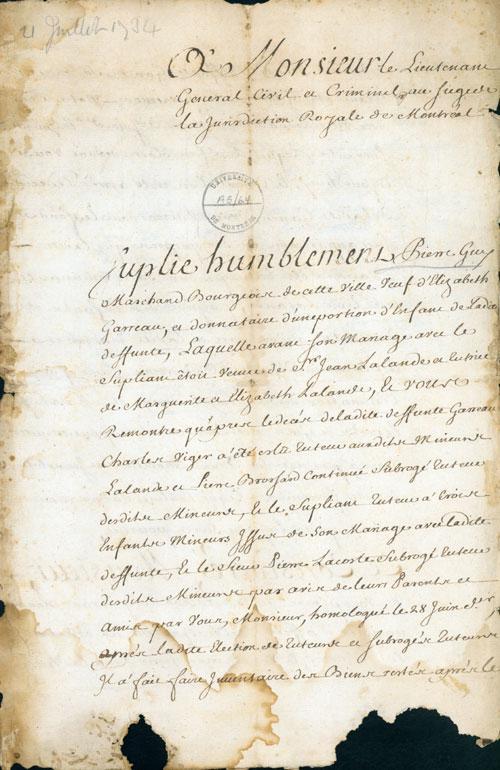 21 Juillet 1734
A Monsieur le Lieutenant
General Civil et Criminel au siege de
la Jurisdiction Royale de Montreal
UNIVERSITÉ
A5/64
DE MONTRÉAL
Suplie humblement Pierre Guy
Marchand Bourgeois de cette Ville Veuf d'Elizabeth
Garreau, et donnataire d'une portion d'Enfant de Ladite
deffunte, Laquelle avant son Mariage avec le
Supliant étoit veuve de Sr. Jean Lalande et tutrice
de Marguerite et Elizabeth Lalande, Et vous
Remontre qu'apres le decés de ladite deffunte Garreau
Charles Viger a été eslû tuteur auxdits Mineurs
Lalande et Pierre Brossard Continué Subrogé tuteur
desdits Mineurs, Et le Supliant tuteur a trois
Enfants Mineurs Issus de son Mariage avec ladite
deffunte, Et le Sieur Pierre Lacoste Subrogé tuteur
desdits Mineurs par avis de leurs Parents et
amis par Vous, Monsieur, homologué le 28 Juin der
aprés ladite Election de tuteurs et Subrogés tuteurs
Il a fait faire Inventaire des Biens restés aprés le